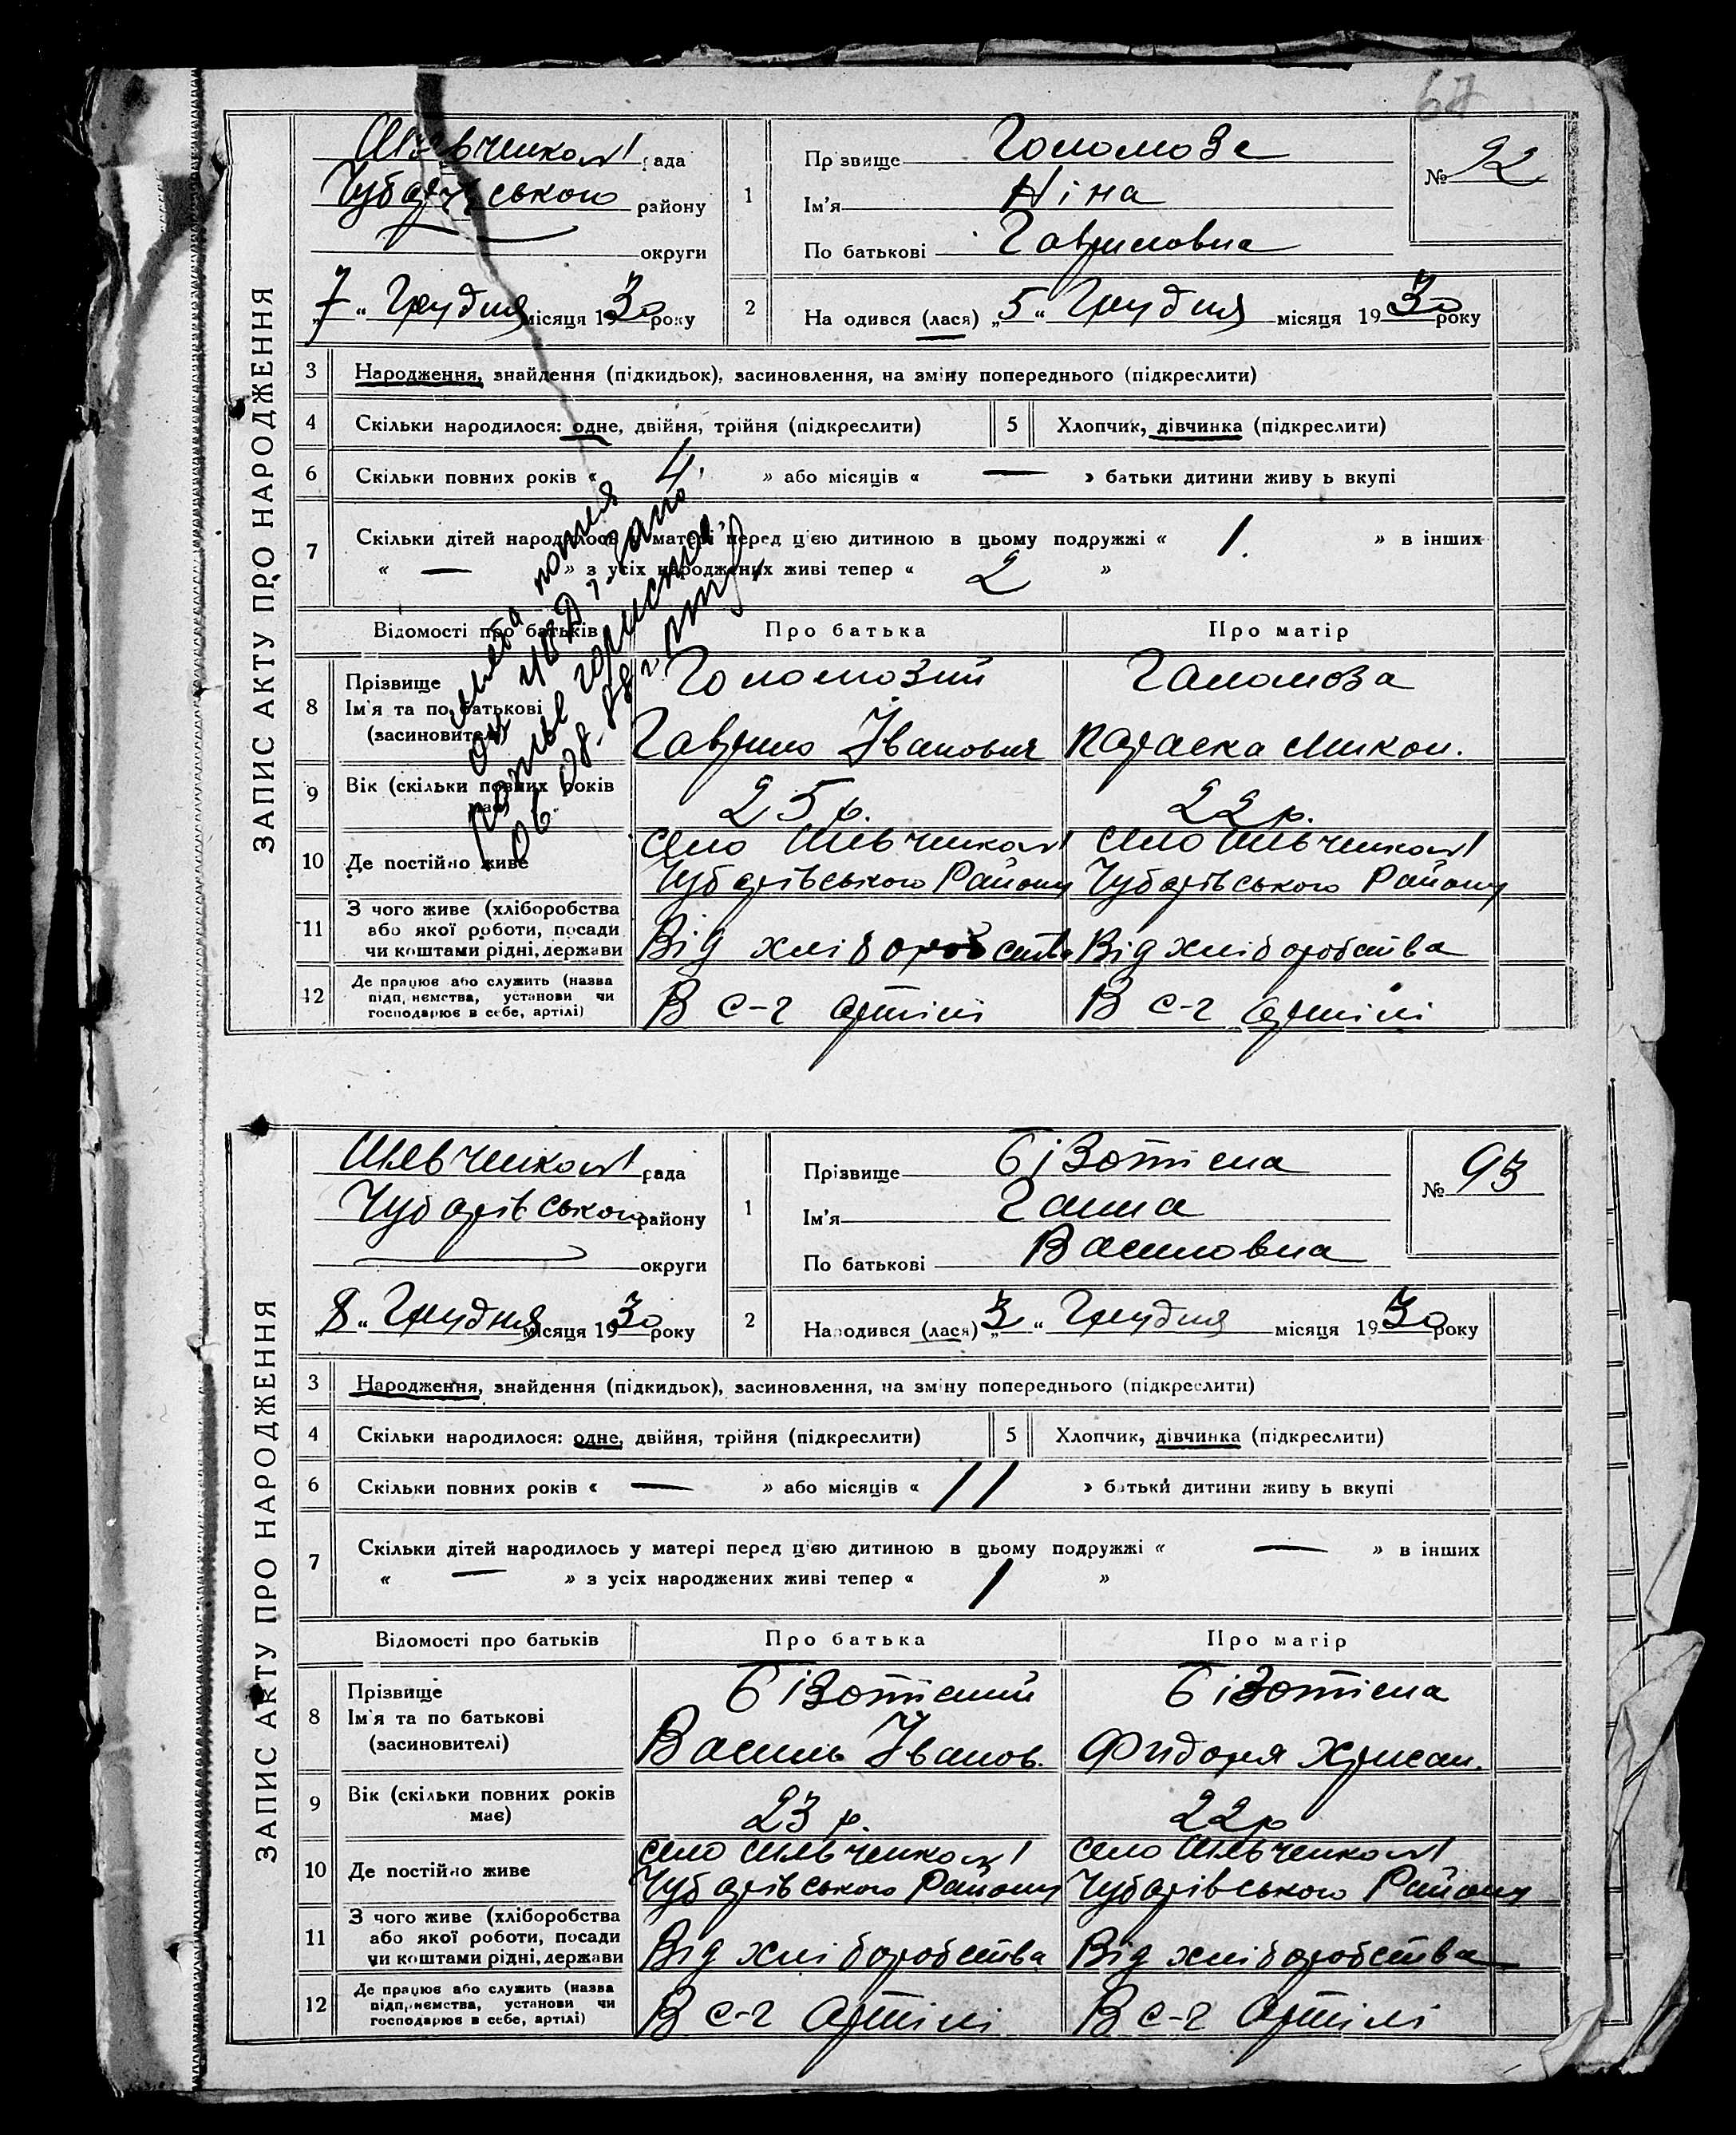 67
ЗАПИС АКТУ ПРО НАРОДЖЕННЯ
рада
Чубарівського району
округи
„7“ Грудня місяця 1930 року
1
Прізвище Голомоза
Ім'я Ніна
По батькові Гавриловна
№ 92
2
Народився (лася) „5“ Грудня місяця 1930 року
3 Народження, знайдення (підкидьок), засиновлення, на зміну попереднього (підкреслити)
4 Скільки народилося: одне, двійня, трійня (підкреслити) 5 Хлопчик, дівчинка (підкреслити)
6 Скільки повних років « 4 » або місяців « — » батьки дитини живуть вкупі
7 Скільки дітей народилось у матері перед цією дитиною в цьому подружжі « 1. » в інших
« — » з усіх народжених живі тепер « 2 »
Відомості про батьків Про батька Про матір
8 Прізвище
Ім'я та по батькові
(засновителі)
Голомозий
Гаврило Іванович
Галомоза
Параска Микол.
9 Вік (скільки повних років має) 25 р. 22 р.
10 Де постійно живе
село
Чубарівського Району
село
Чубарівського Району
11 З чого живе (хліборобства
або якої роботи, посади
чи коштами рідні, держави
Від хліборобства Від хліборобства
12 Де працює або служить (назва
підприємства, установи чи
господарює в себе, артілі)
В с-г артілі В с-г артілі
ЗАПИС АКТУ ПРО НАРОДЖЕННЯ
рада
Чубарівського району
округи
„8“ Грудня місяця 1930 року
1
Прізвище Бізотісна
Ім'я Ганна
По батькові Василовна
№ 93
2
Народився (лася) „3“ Грудня місяця 1930 року
3 Народження, знайдення (підкидьок), засиновлення, на зміну попереднього (підкреслити)
4 Скільки народилося: одне, двійня, трійня (підкреслити) 5 Хлопчик, дівчинка (підкреслити)
6 Скільки повних років « — » або місяців « 11 » батьки дитини живуть вкупі
7 Скільки дітей народилось у матері перед цією дитиною в цьому подружжі « — » в інших
« — » з усіх народжених живі тепер « 1 »
Відомості про батьків Про батька Про матір
8 Прізвище
Ім'я та по батькові
(засиновителі)
Бізотісний
Василь Іванов.
Бізотісна
Фидора Хрисан.
9 Вік (скільки повних років
має)
23 р. 22 р
10 Де постійно живе
село
Чубарівського Району
село
Чубарівського Району
11 З чого живе (хліборобства
або якої роботи, посади
чи коштами рідні, держави
Від хліборобства Від хліборобства
12 Де працює або служить (назва
підприємства, установи чи
господарює в себе, артілі)
В с-г артілі В с-г артілі